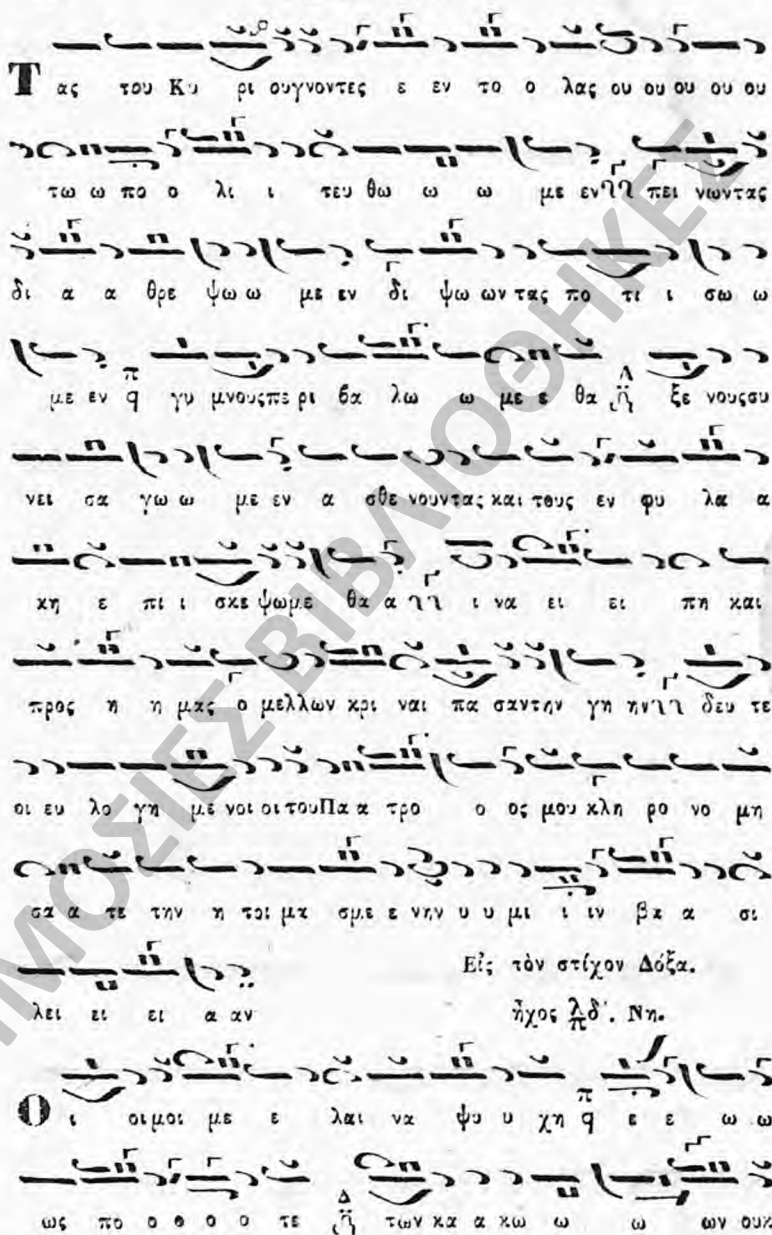 Τας του Κυ ρι ουγνοντες ε εν το ο λας ου ου ου ου ου
τω ω πο ο λι ι τευ θω ω ω με εν πει νωντας
δι α α θρε ψω ω με εν δι ψω ων τας πο τι ι σω ω
με εν π q γυ μνουςπε ρι βα λω ω με ε θα Δ ξε νουςσυ
νει σα γω ω με εν α σθε νουντας και τους εν φυ λα α
κη ε πι ι σκε ψωμε θα α ι να ει ει πη και
προς η η μας ο μελλων κρι ναι πα σαντην γη ην δευ τε
οι ευ λο γη με νοι οι τουΠα α τρο ο ος μου κλη ρο νο μη
σα α τε την η τοι μα σμε ε νην υ υ μι ι ιν βα α σι
λει ει ει α αν
Εἰς τὸν στίχον Δόξα.
ἦχος λπδ'. Νη.
Ο ι οιμοι με ε λαι να ψυ υ χη π q ε ε ω ω
ως πο ο θ ο ο τε Δ των κα α κω ω ω ων ουκ
ΔΗΜΟΣΙΕΣ ΒΙΒΛΙΟΘΗΚΕΣ